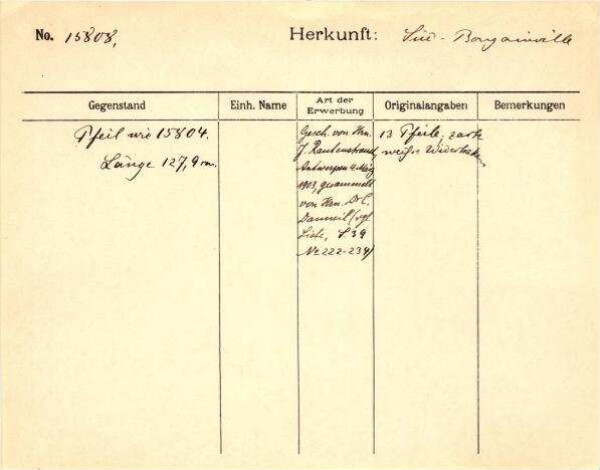 No. 15808, Herkunft: Süd-Bougainville
Gegenstand Einh. Name Art der Erwerbung Originalangaben Bemerkungen
Pfeil wie 15804.
Länge 127,9 cm.
Gesch. von Hrn.
J. Rautenstrauch,
Antwerpen
1903, gesammelt
von Hrn.
(vgl.
Liste, S 39
No 222-234)
13 Pfeile, zarte
weiße